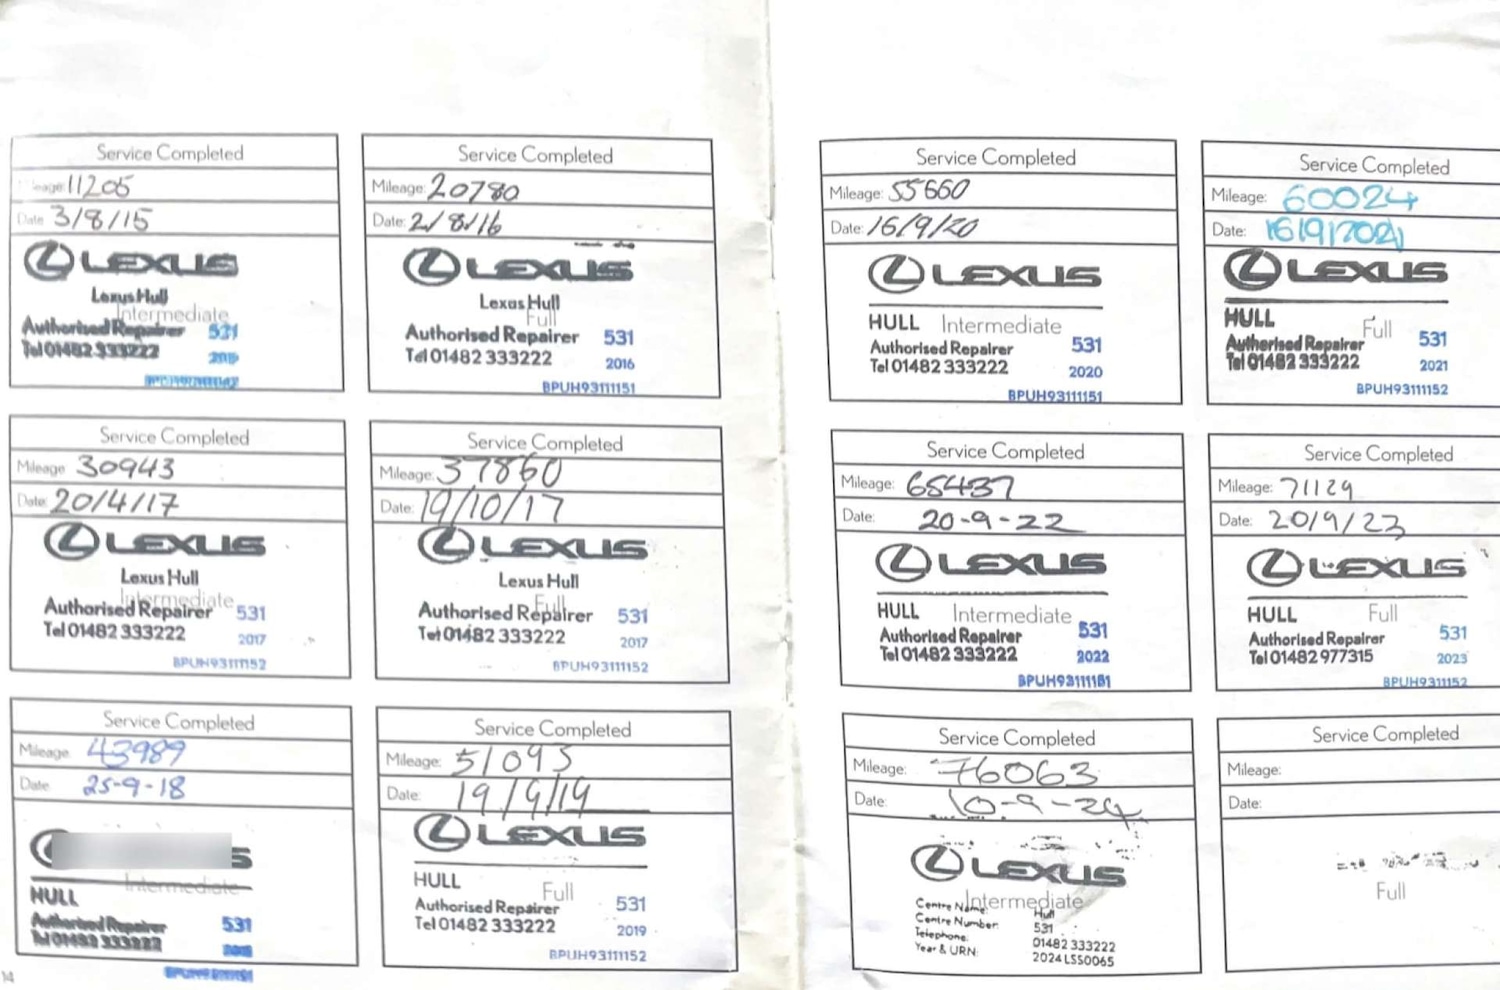 Service Completed
Mileage: 11205
Date 3/8/15
LEXUS
Lexus Hull
Intermediate
Authorised Repairer 531
Tel 01482 333222
Service Completed
Mileage: 20780
Date: 2/8/16
LEXUS
Lexus Hull
Full
Authorised Repairer 531
Tel 01482 333222 2016
BPUH93111151
Service Completed
Mileage 30943
Date: 20/4/17
LEXUS
Lexus Hull
Intermediate
Authorised Repairer 531
Tel 01482 333222 2017
BPUH93111152
Service Completed
Mileage: 37860
Date: 19/10/17
LEXUS
Lexus Hull
Full
Authorised Repairer 531
Tel 01482 333222 2017
BPUH93111152
Service Completed
Mileage 43989
Date 25-9-18
HULL Intermediate
Authorised Repairer 531
Tel 01482 333222 2018
Service Completed
Mileage: 51093
Date: 19/9/19
LEXUS
HULL Full
Authorised Repairer 531
Tel 01482 333222 2019
BPUH93111152
14
Service Completed
Mileage: 55660
Date: 16/9/20
LEXUS
HULL Intermediate
Authorised Repairer 531
Tel 01482 333222 2020
BPUH93111151
Service Completed
Mileage: 60024
Date: 16/9/2021
LEXUS
HULL Full
Authorised Repairer 531
Tel 01482 333222 2021
BPUH93111152
Service Completed
Mileage: 65437
Date: 20-9-22
LEXUS
HULL Intermediate
Authorised Repairer 531
Tel 01482 333222 2022
Service Completed
Mileage: 71129
Date: 20/9/23
LEXUS
HULL Full
Authorised Repairer 531
Tel 01482 977315 2023
BPUH93111152
Service Completed
Mileage: 76063
Date: 10-9-24
LEXUS
Intermediate
Centre Name: Hull
Centre Number: 531
Telephone: 01482 333222
Year & URN: 2024 LSS0065
Service Completed
Mileage:
Date:
Full